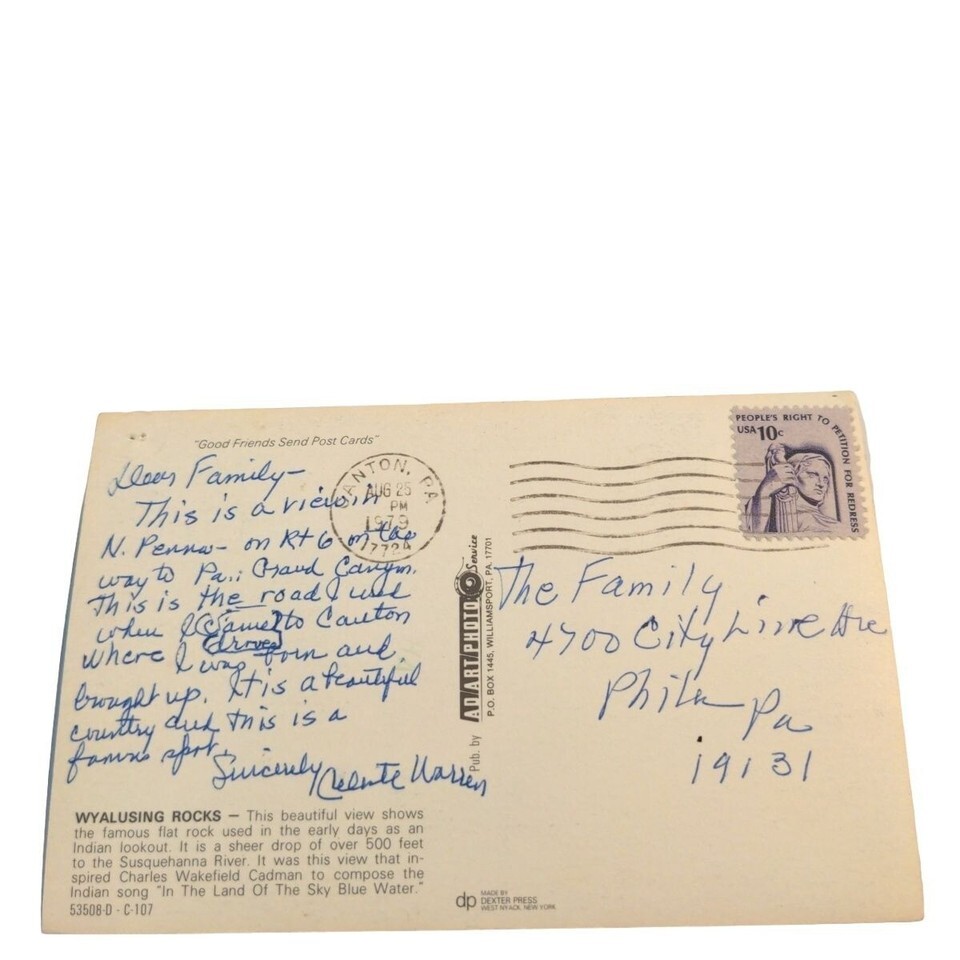 "Good Friends Send Post Cards"
Dear Family-
This is a view in
N. Penna- on Rt 6 on the
way to Pa.; Grand Canyon.
This is the road I used
when I (came) to Canton
drove
where I was born and
brought up. It is a beautiful
country and this is a
famous spot.
Sincerely
Warren
WYALUSING ROCKS – This beautiful view shows
the famous flat rock used in the early days as an
Indian lookout. It is a sheer drop of over 500 feet
to the Susquehanna River. It was this view that in-
spired Charles Wakefield Cadman to compose the
Indian song "In The Land Of The Sky Blue Water."
53508-D - C-107
CANTON, PA.
AUG 25
PM
1979
17724
Pub. by AD/ART/PHOTO Service
P.O. BOX 1445, WILLIAMSPORT, PA. 17701
PEOPLE'S RIGHT TO PETITION FOR REDRESS
USA 10c
The Family
4700 City Line Ave
Phila Pa
19131
dp MADE BY
DEXTER PRESS
WEST NYACK, NEW YORK